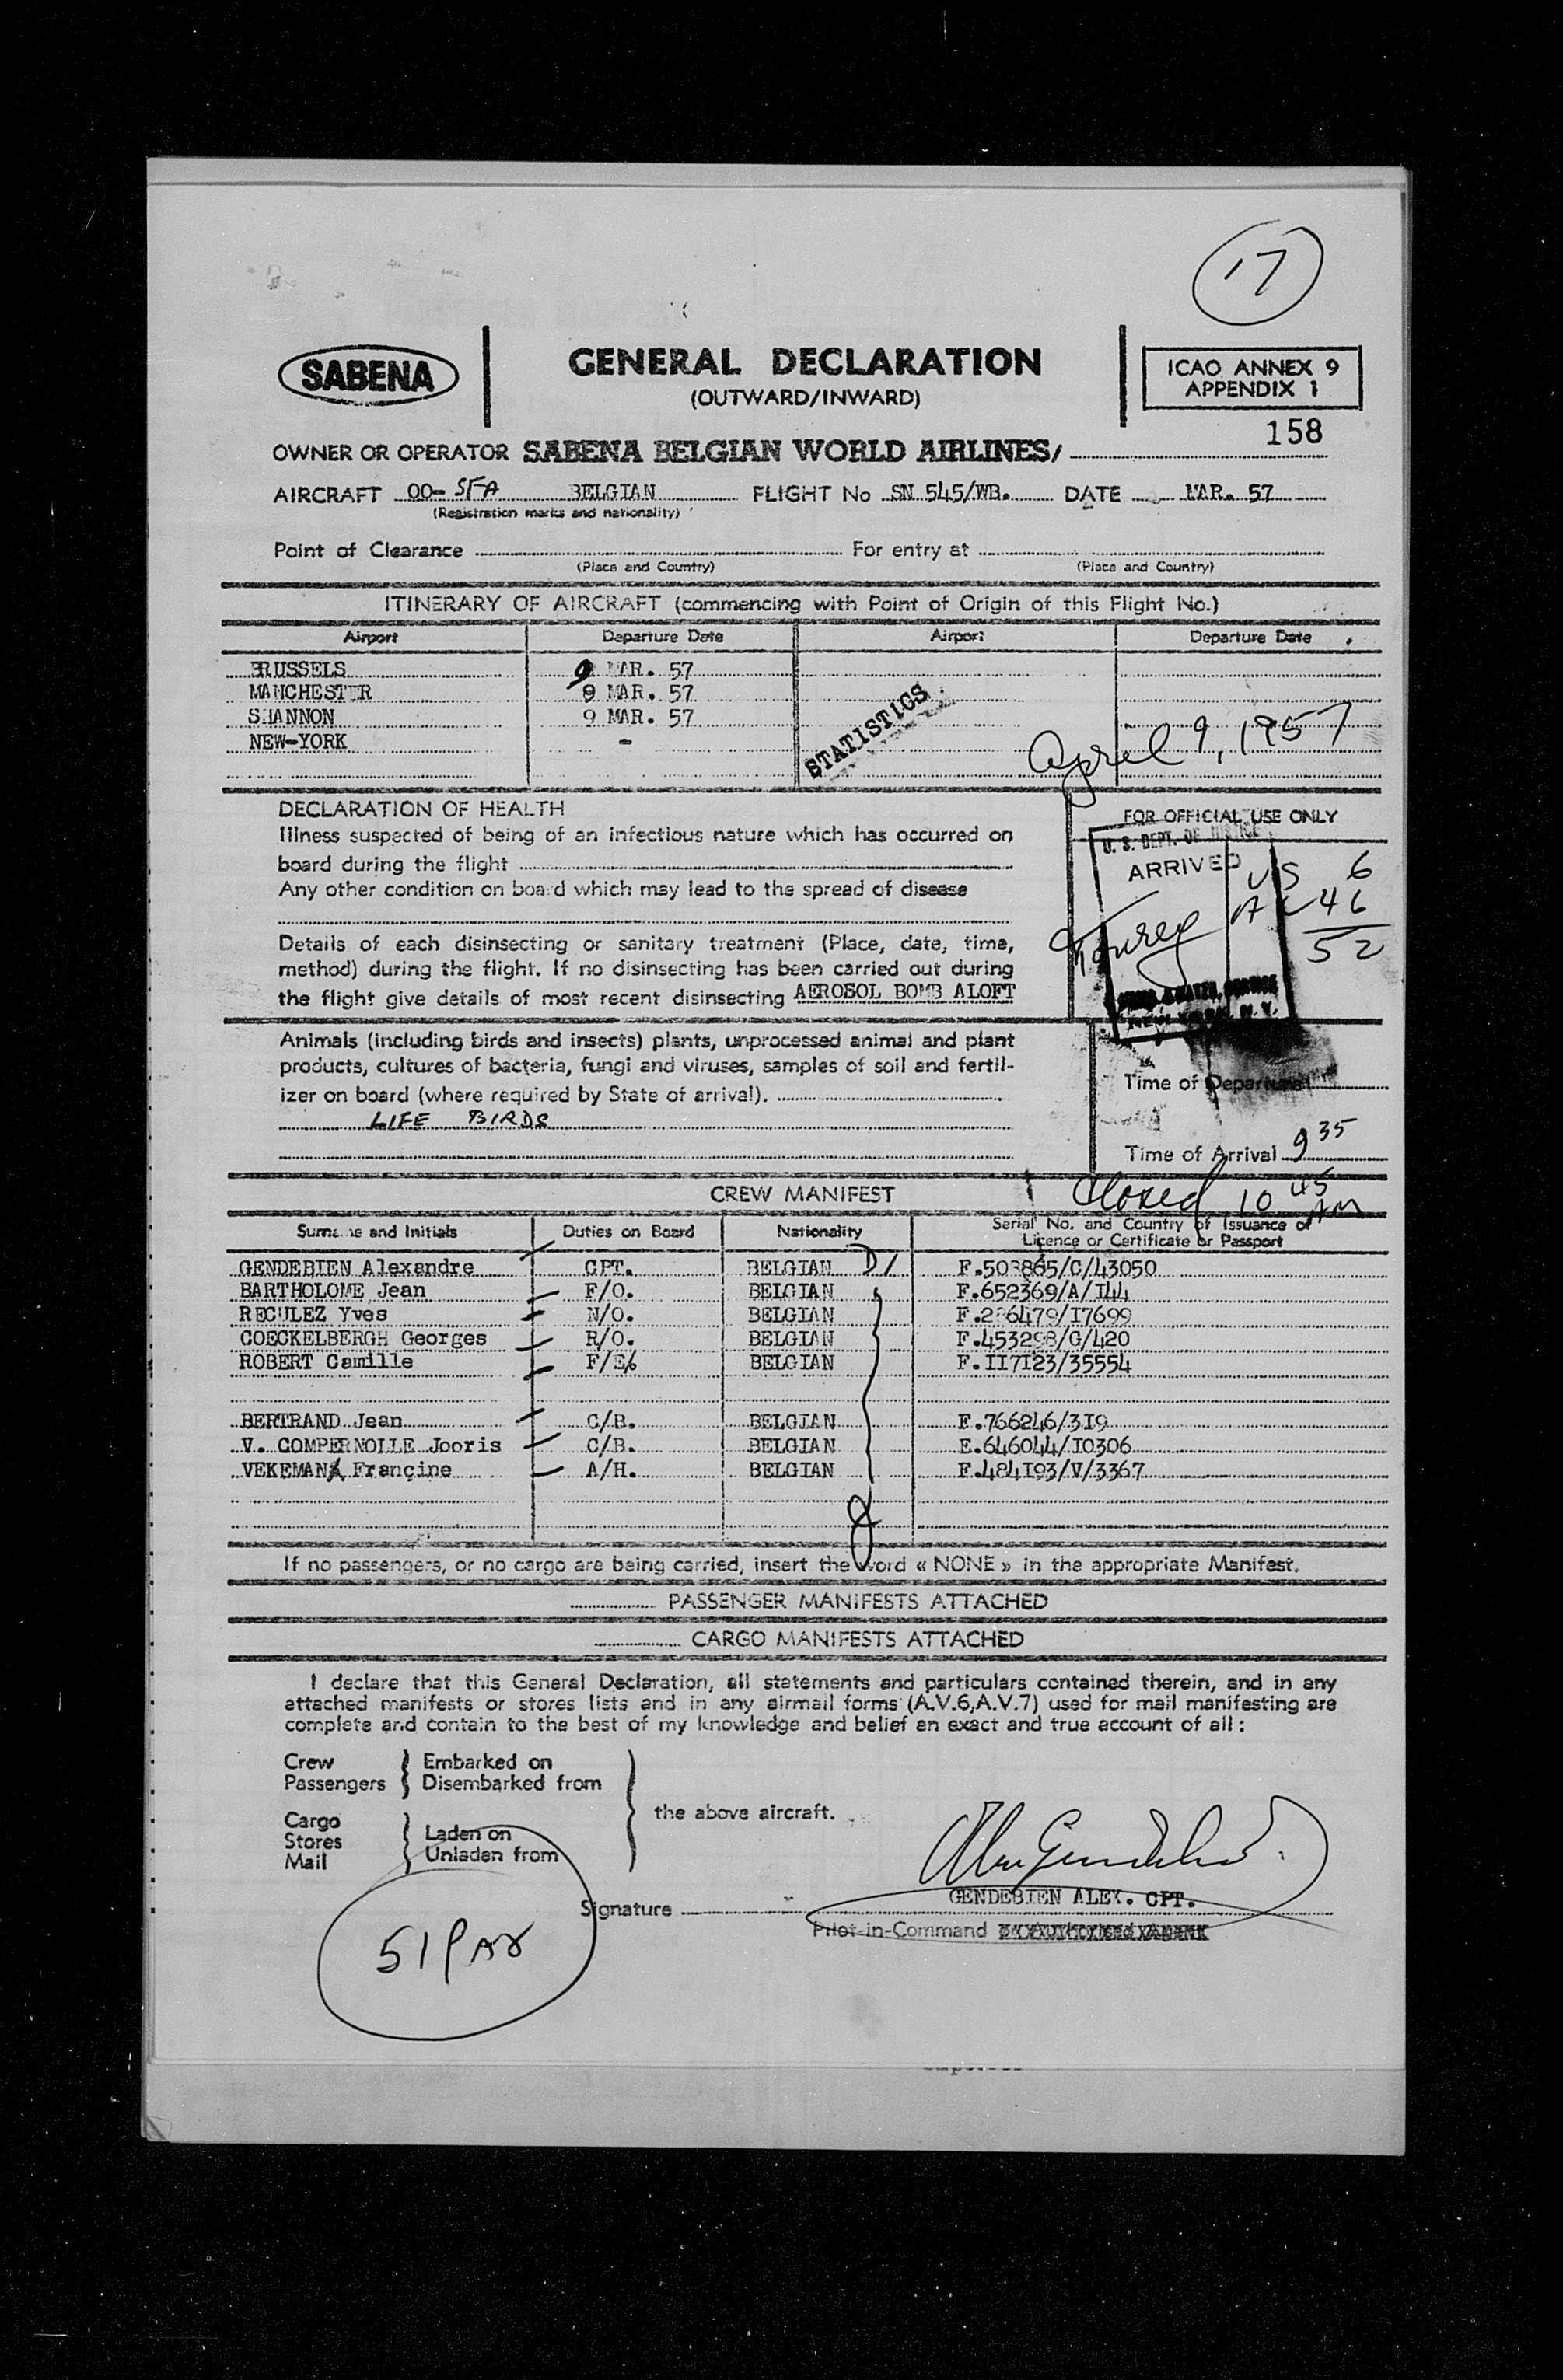 17
SABENA
GENERAL DECLARATION
(OUTWARD/INWARD)
ICAO ANNEX 9
APPENDIX 1
158
OWNER OR OPERATOR SABENA BELGIAN WORLD AIRLINES/
AIRCRAFT OO-SFA BELGIAN FLIGHT No SN 545/WB. DATE MAR. 57
(Registration marks and nationality)
Point of Clearance For entry at
(Place and Country) (Place and Country)
ITINERARY OF AIRCRAFT (commencing with Point of Origin of this Flight No.)
Airport Departure Date Airport Departure Date
BRUSSELS 9 MAR. 57
MANCHESTER 9 MAR. 57
SHANNON 9 MAR. 57
NEW-YORK -
STATISTICS
April 9, 1957
DECLARATION OF HEALTH
Illness suspected of being of an infectious nature which has occurred on
board during the flight
Any other condition on board which may lead to the spread of disease
Details of each disinsecting or sanitary treatment (Place, date, time,
method) during the flight. If no disinsecting has been carried out during
the flight give details of most recent disinsecting AEROSOL BOMB ALOFT
FOR OFFICIAL USE ONLY
U. S. DEPT. OF JUSTICE
ARRIVED
US 6
AL 46
52
NEW YORK, N. Y.
Animals (including birds and insects) plants, unprocessed animal and plant
products, cultures of bacteria, fungi and viruses, samples of soil and fertil-
izer on board (where required by State of arrival).
LIFE BIRDS
Time of Departure
Time of Arrival 9 35
Closed 10 45 AM
CREW MANIFEST
Surname and Initials Duties on Board Nationality Serial No. and Country of Issuance of
Licence or Certificate or Passport
GENDEBIEN Alexandre CPT. BELGIAN D1 F.503865/C/43050
BARTHOLOME Jean F/O. BELGIAN F.652369/A/I44
RECULEZ Yves N/O. BELGIAN F.286479/I7699
COECKELBERGH Georges R/O. BELGIAN F.453298/G/420
ROBERT Camille F/E. BELGIAN F.II7I23/35554
BERTRAND Jean C/B. BELGIAN F.766246/3I9
V. COMPERNOLLE Jooris C/B. BELGIAN E.646044/I0306
VEKEMAN Francine A/H. BELGIAN F.484I93/V/3367
If no passengers, or no cargo are being carried, insert the word « NONE » in the appropriate Manifest.
PASSENGER MANIFESTS ATTACHED
CARGO MANIFESTS ATTACHED
I declare that this General Declaration, all statements and particulars contained therein, and in any
attached manifests or stores lists and in any airmail forms (A.V.6,A.V.7) used for mail manifesting are
complete and contain to the best of my knowledge and belief an exact and true account of all :
Crew Embarked on
Passengers Disembarked from
the above aircraft.
Cargo
Stores Laden on
Mail Unladen from
Signature GENDEBIEN ALEX. CPT.
Pilot-in-Command
51 PAX